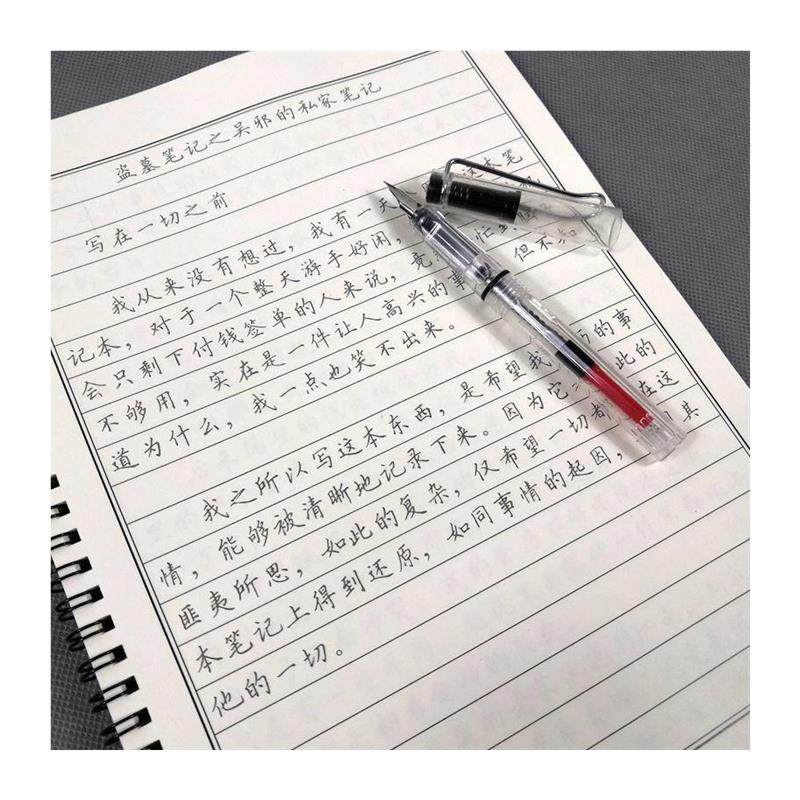 盗墓笔记之吴邪的私家笔记
写在一切之前
我从来没有想过，我有一天这本笔
记本，对于一个整天游手好闲，
会只剩下付钱签单的人来说，竟忙到
不够用，实在是一件让人高兴的事，但不知
道为什么，我一点也笑不出来。
我之所以写这本东西，是希望我历的事
情，能够被清晰地记录下来。因为它此的
匪夷所思，如此的复杂，仅希望一切都在这
本笔记上得到还原，如同事情的起因，其
他的一切。